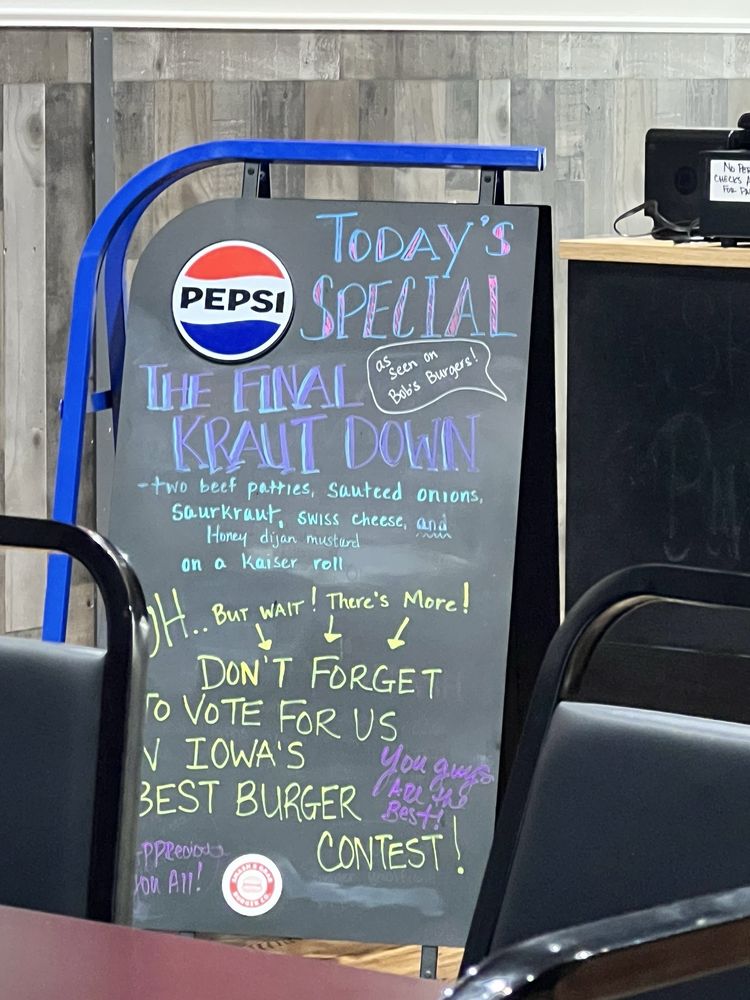 TODAY'S
SPECIAL
PEPSI
as
seen on
Bob's Burgers!
THE FINAL
KRAUT DOWN
-two beef patties, sauteed onions,
saurkraut, swiss cheese, and
Honey dijan mustard
on a kaiser roll
OH.. BUT WAIT! There's More!
DON'T FORGET
TO VOTE FOR US
N IOWA'S
BEST BURGER
CONTEST!
You guys
ARE the
Best!
PPReciate
you All!
NO PER
CHECKS A